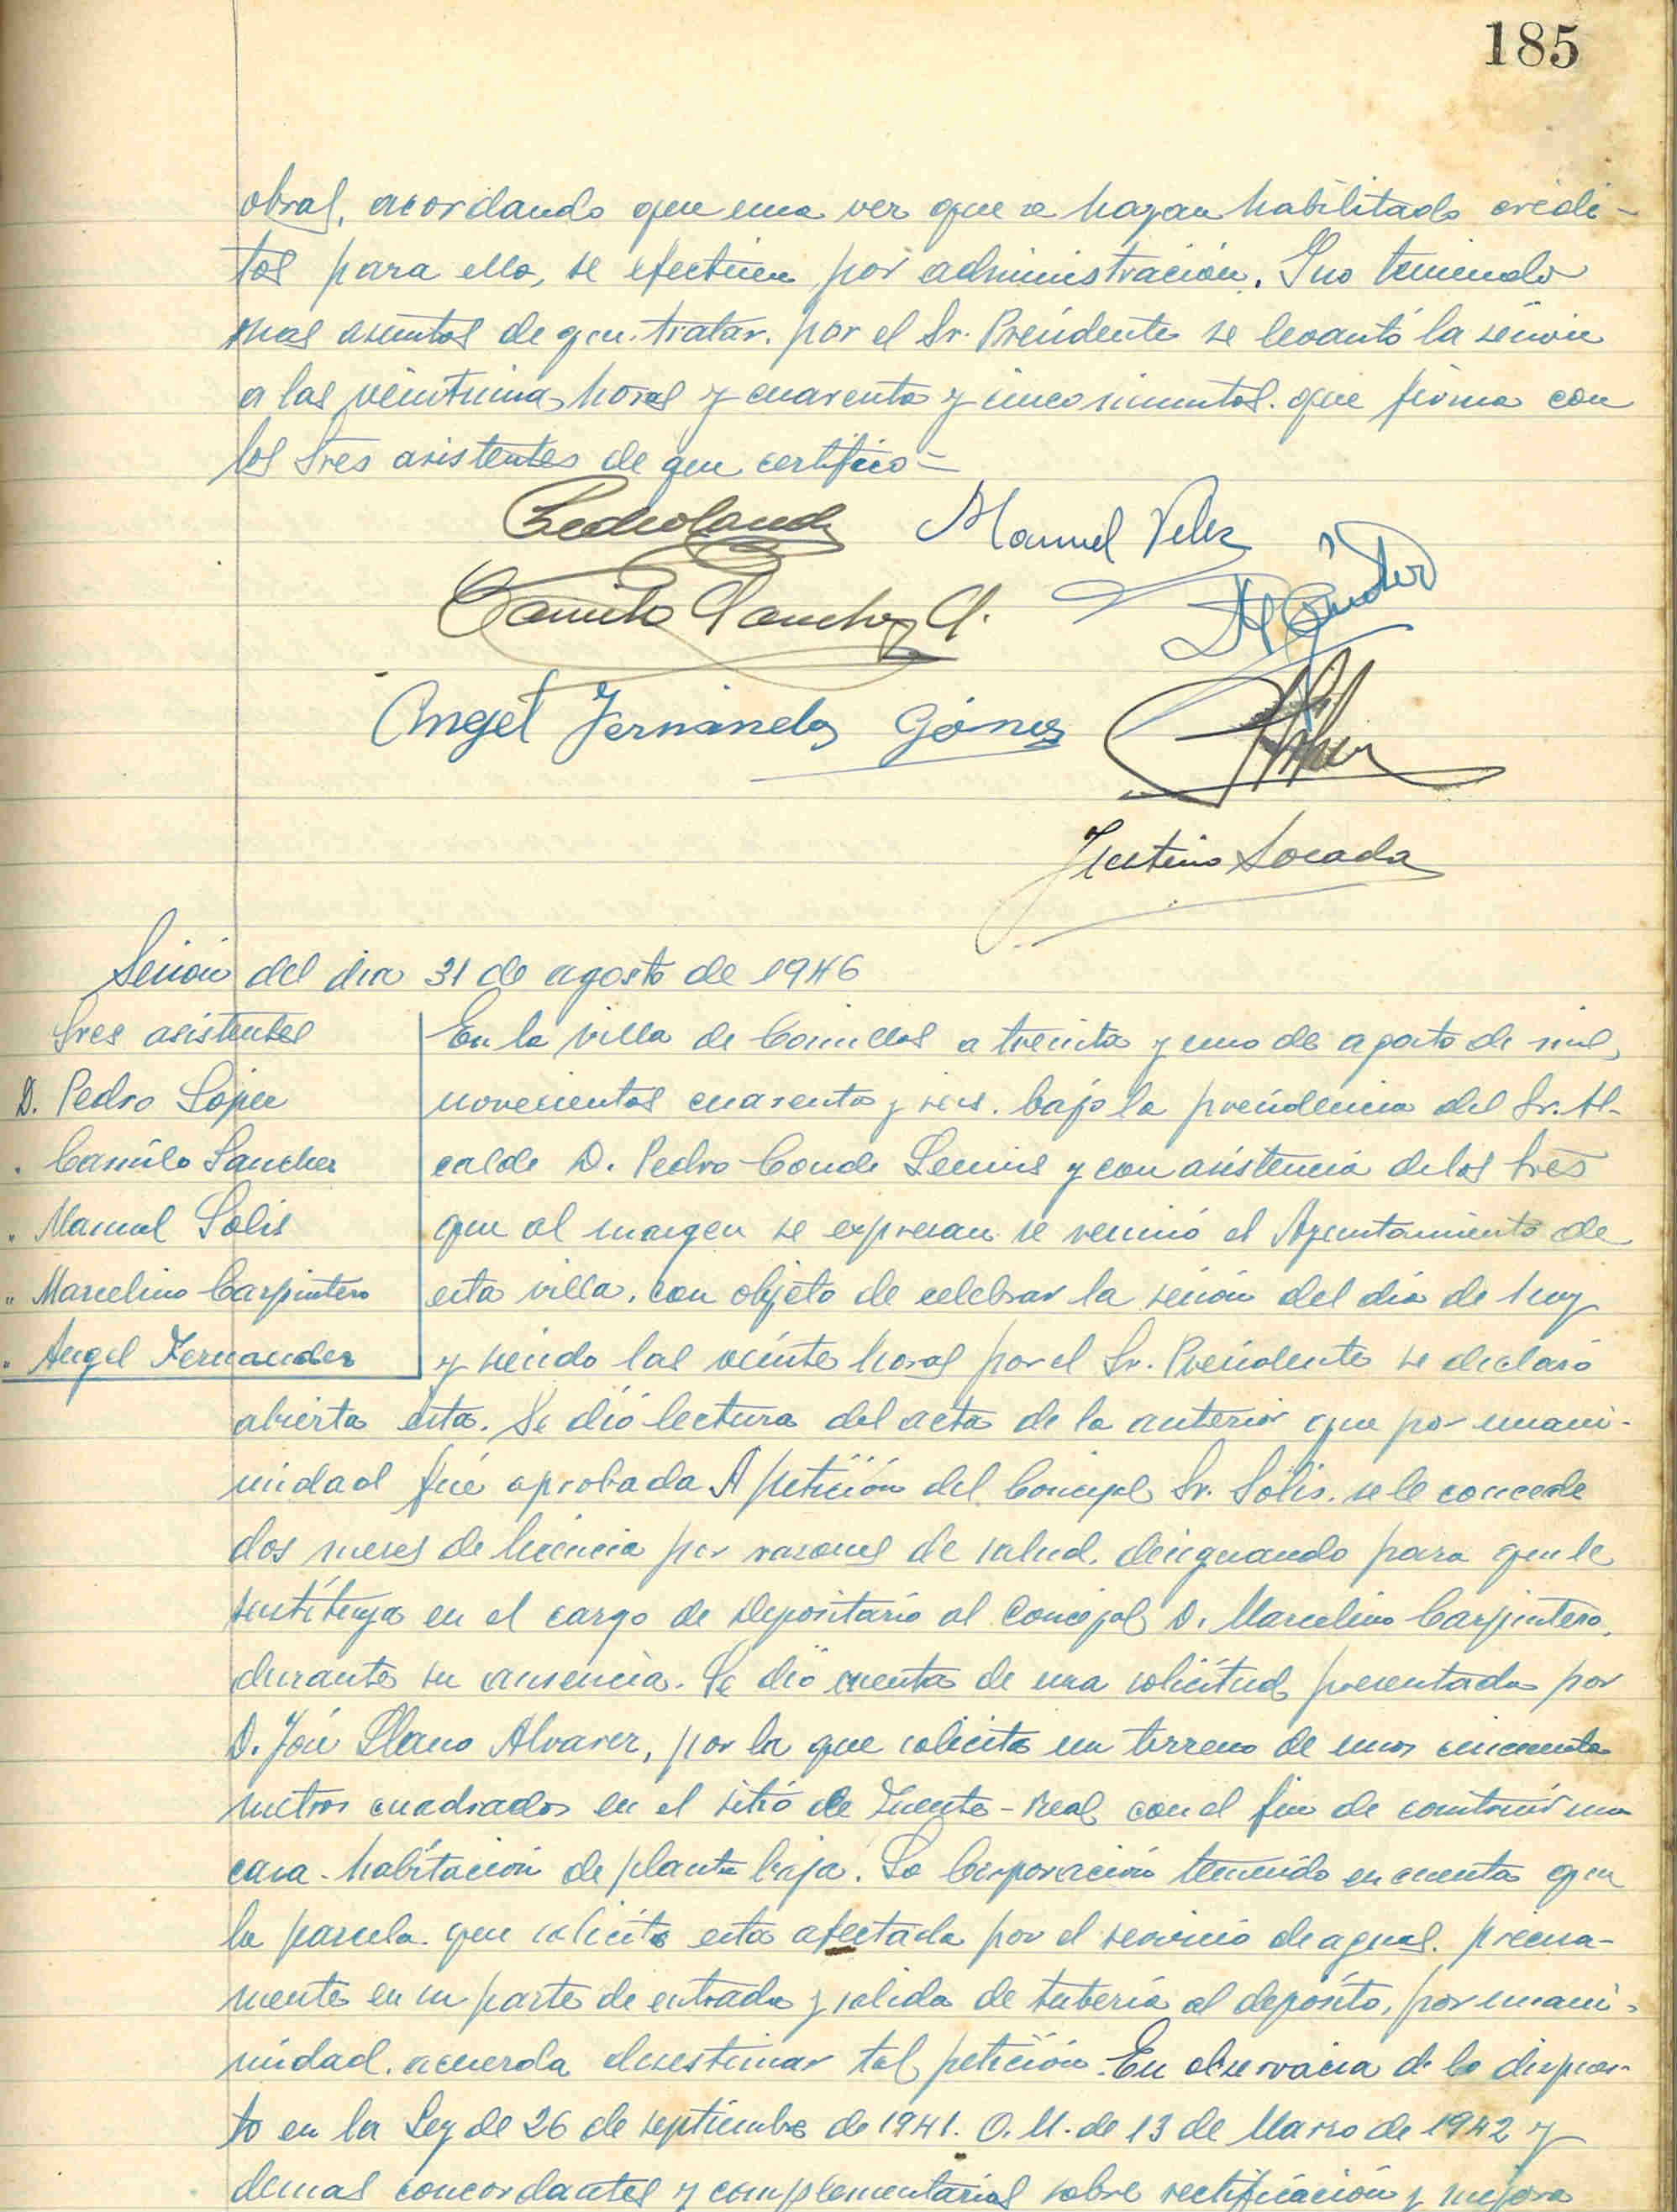 185
obras, acordando que una vez que se hayan habilitado crédi-
tos para ello, se efectúen por administración. Y no teniendo
mas asuntos de que tratar, por el Sr. Presidente se levantó la sesión
a las veintiuna horas y cuarenta y cinco minutos. que firma con
los Sres asistentes de que certifico =
Manuel Velez
Camilo Sanchez
Angel Fernández Gómez
Justino Losada
Sesión del dia 31 de agosto de 1946
Sres asistentes
D. Pedro López
" Camilo Sanchez
" Manuel Solis
" Marcelino Carpintero
" Angel Fernandez
En la villa de Comillas a treinta y uno de agosto de mil
novecientos cuarenta y seis. bajo la presidencia del Sr. Al-
calde D. Pedro Conde y con asistencia de los Sres
que al margen se expresan se reunió el Ayuntamiento de
esta villa, con objeto de celebrar la sesión del día de hoy
y siendo las veinte horas por el Sr. Presidente se declaró
abierta esta. Se dió lectura del acta de la anterior que por unani-
midad fué aprobada A petición del Concejal Sr. Solis. se le concede
dos meses de licencia por razones de salud, designando para que le
sustituya en el cargo de Depositario al Concejal D. Marcelino Carpintero,
durante su ausencia. Se dió cuenta de una solicitud presentada por
D. José Llano Alvarez, por la que solicita un terreno de unos cincuenta
metros cuadrados en el sitio de Fuente-Real con el fin de construir una
casa-habitación de planta baja. La Corporación teniendo en cuenta que
la parcela que solicita esta afectada por el servicio de aguas. precisa-
mente en su parte de entrada y salida de tubería al depósito, por unani-
midad. acuerda desestimar tal petición. En observacia de lo dispues-
to en la Ley de 26 de septiembre de 1941. O.M. de 13 de Marzo de 1942 y
demas concordantes y complementarias sobre rectificación y mejora